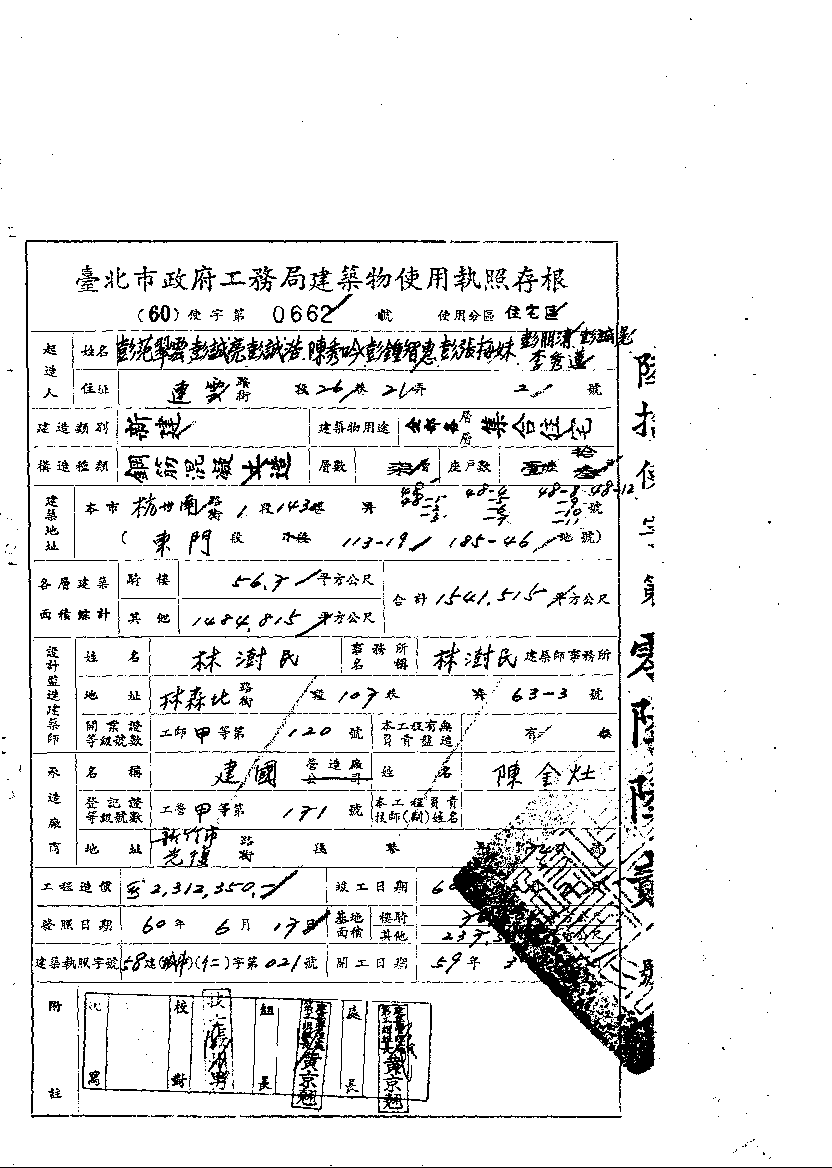 臺北市政府工務局建築物使用執照存根
(60)使字第 0662 號 使用分區 住宅區
起造人 姓名 彭范翠雲 彭誠亮 彭誠浩 陳秀吟 彭鍾智惠 彭張梅妹 彭朋清 彭誠晃
李秀蓮
住址 連雲 路街 段 26 巷 21 弄 2 號
建造類別 新建 建築物用途 全部各層層 集合住宅
構造種類 鋼筋混凝土造 層數 柒層 座戶數 壹座 拾
建築地址 本市 杭州南 路街 1 段 143 巷 弄 48 48-4 48-8 48-12 號
48-1 -5 -9
-2 -6 -10
-3 -7 -11
(東門 段 小段 113-19 185-46 地號)
各層建築面積總計 騎樓 56.7 平方公尺 合計 1541.515 平方公尺
其他 1484.815 平方公尺
設計監造建築師 姓名 林澍民 事務所名稱 林澍民 建築師事務所
地址 林森北 路街 段 107 巷 弄 63-3 號
開業證等級號數 工師甲等第 120 號 本工程有無負責監造 有
承造廠商 名稱 建國 營造廠公司 姓名 陳金灶
登記證等級號數 工營甲等第 171 號 本工程負責技師(副)姓名
地址 新竹市光復 路街 段 巷 號
工程造價 2,312,350.- 竣工日期 60
發照日期 60 年 6 月 17 日 基地面積 樓騎
其他 237.
建築執照字號 58 建(城中)(十二)字第 021 號 開工日期 59 年 3
附註 校對 組長 黃京翹 處長 黃京翹
繕寫
陸拾使字第零陸陸貳號